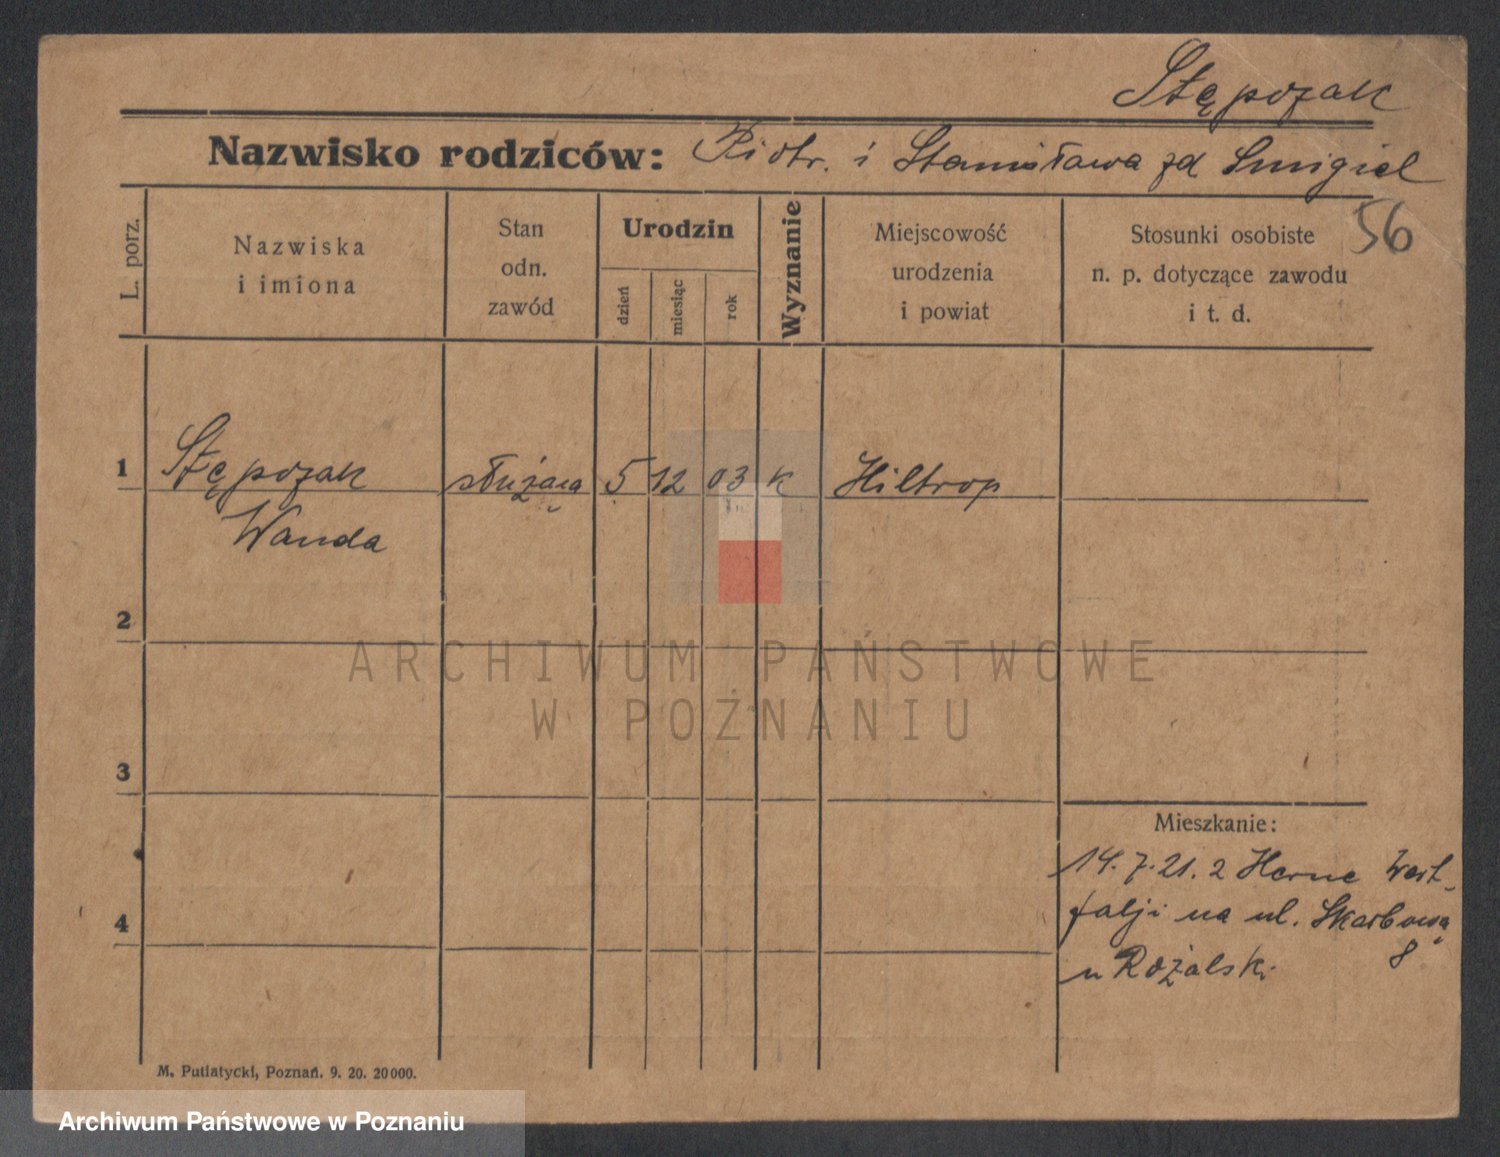 Stępozak
Nazwisko rodziców: Piotr. i Stanisława zd Smigiel
56
L. porz.
Nazwiska
i imiona
Stan
odn.
zawód
Urodzin
dzień
miesiąc
rok
Wyznanie
Miejscowość
urodzenia
i powiat
Stosunki osobiste
n. p. dotyczące zawodu
i t. d.
1 Stępozak służąca 5 12 03 k Hiltrop
Wanda
2
ARCHIWUM PAŃSTWOWE
W POZNANIU
3
Mieszkanie:
14.7.21. z Herne West-
falji na ul. Skarbową
8
4
u Różalski
M. Putiatycki, Poznań. 9. 20. 20000.
Archiwum Państwowe w Poznaniu